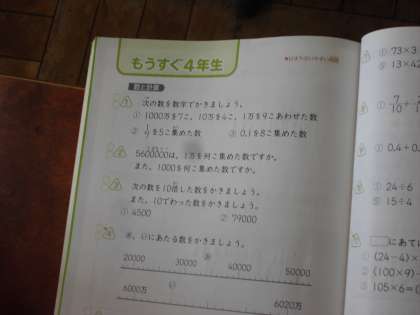 もうすぐ4年生
数と計算
次の数を数字でかきましょう。
① 1000万を7こ、10万を4こ、1万を9こあわせた数
を5こ集めた数 ③ 0.1を8こ集めた数
5600000は、1万を何こ集めた数ですか。
また、1000を何こ集めた数ですか。
次の数を10倍した数をかきましょう。
また、10でわった数をかきましょう。
① 4500 ② 79000
にあたる数をかきましょう。
20000 30000 40000 50000
6000万 6020万
73×3
13×42
0.4+0
24÷6
15÷4
にあて
(24-4)×
(100×9)-
105×6=(